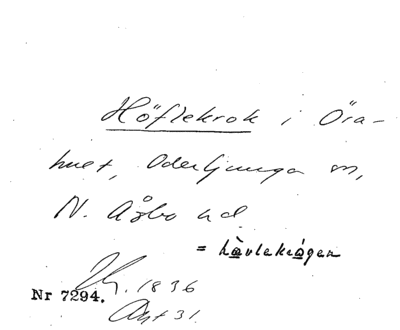 Höflekrok i Öra-
huet, Oderljunga sn,
N. Åsbo hd
= håvlekrógen
1836
Nr 7294.
Akt 31.